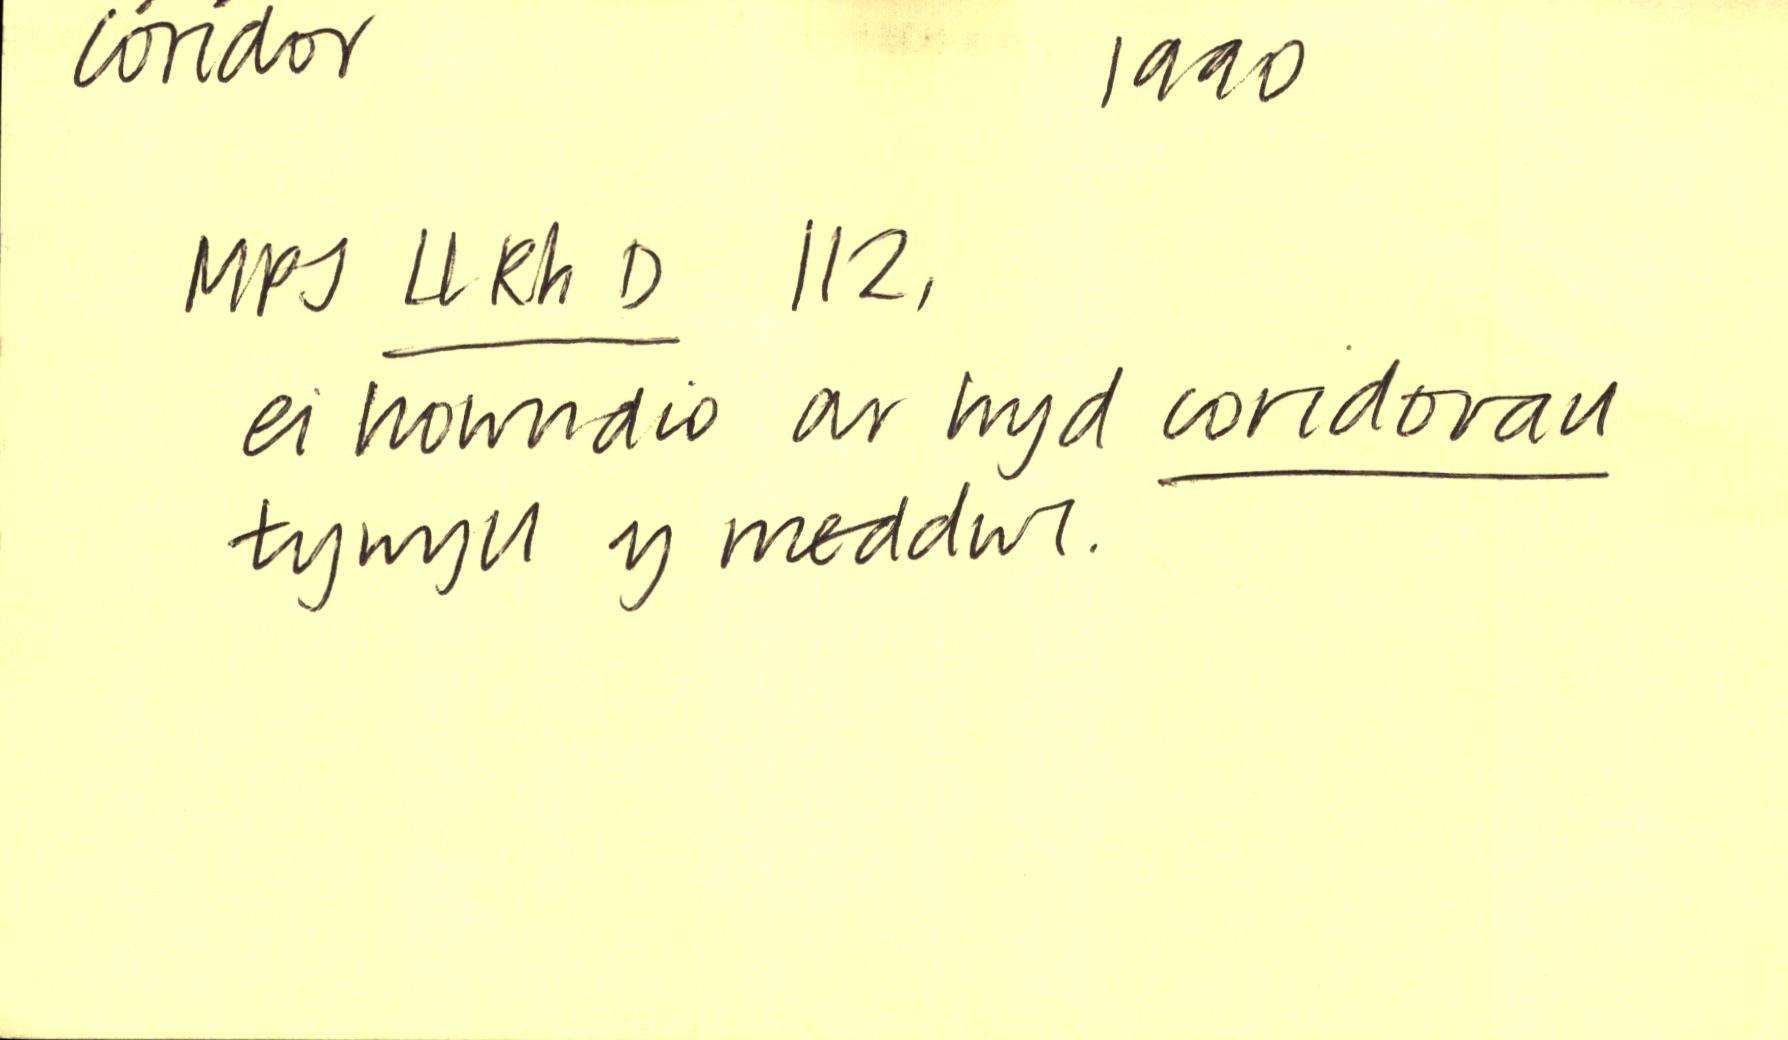 coridor 1990
MPJ Ll Rh D 112,
ei howndio ar hyd coridorau
tywyll y meddwl.